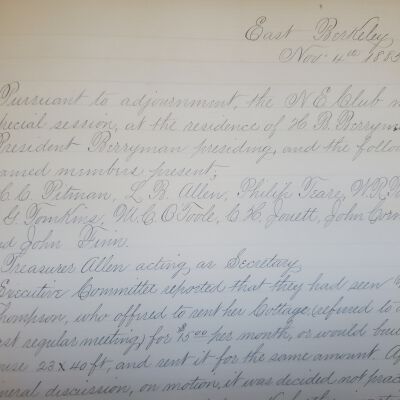 East Berkeley
Nov. 4th 1885
Pursuant to adjournment, the N.E. Club
special session, at the residence of H. B. Berryman
President Berryman presiding, and the follow
named members present;
C. C. Petman, L. B. Allen, Philip Teare, W. R.
G. Tomkins, M. C. O'Toole, C. H. Jouett, John
and John Finn.
Treasurer Allen acting as Secretary
Executive Committee reported that they had seen
Thompson, who offered to rent her Cottage, (refused to
last regular meeting,) for $15.00 per month, or would buil
house 23 x 40 ft, and rent it for the same amount.
general discussion, on motion, it was decided not prac